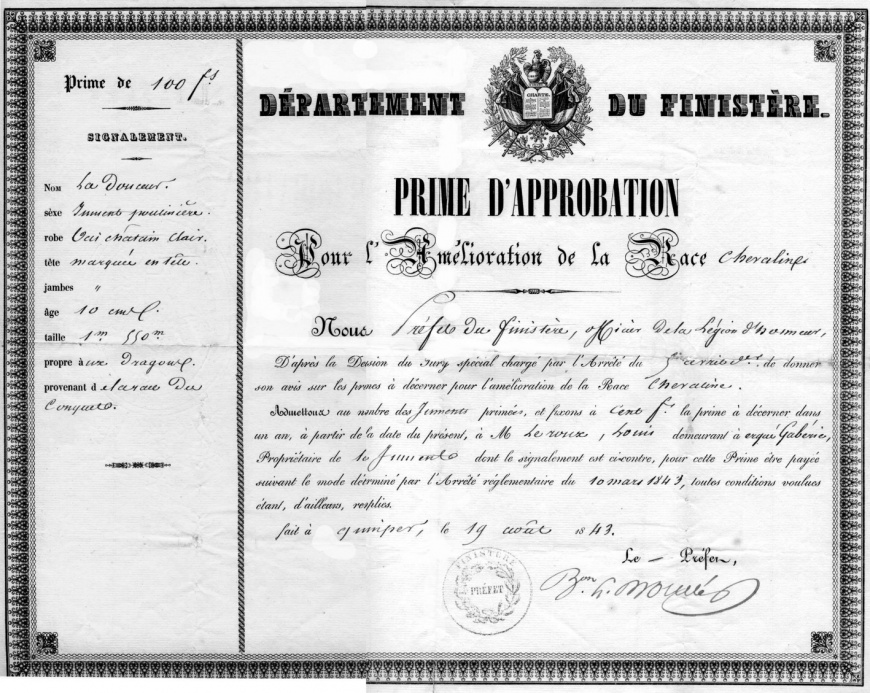 Prime de 100 fs
SIGNALEMENT.
Nom La Douceur.
sèxe Jument poulinière.
robe Bai châtain clair.
tête marquée en tête.
jambes "
âge 10 ans.
taille 1m 550m
propre aux Dragons.
provenant d
Conquet.
CHARTE
DÉPARTEMENT DU FINISTÈRE.
PRIME D'APPROBATION
Pour l'Amélioration de la Race chevaline
Nous Préfet du Finistère, officier de la Légion d'honneur,
D'après la Dession du Jury spécial chargé par l'Arrêté du de donner
son avis sur les prmes à décerner pour l'amélioration de la Race chevaline.
Admettoux au nmbre des Juments primées, et fixons à Cent fs la prime à décerner dans
un an, à partir de la date du présent, à M Le roux, Louis demeurant à ergué Gabéric,
Propriétaire de la Jument dont le signalement est ci-contre, pour cette Prime être payée
suivant le mode détrminé par l'Arrêté réglementaire du 10 mars 1843, toutes conditions voulues
étant, d'ailleurs, resplies.
fait à quimper, le 19 août 1843.
Le - Préfet,
FINISTÈRE
PRÉFET
Bon